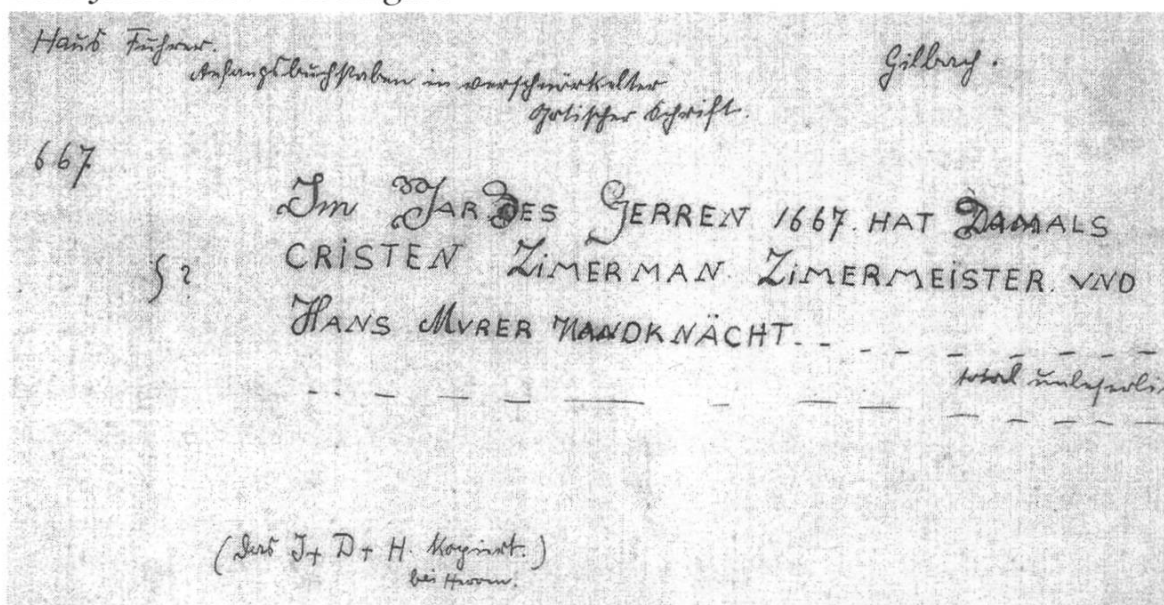 Haus Führer.
Gilbach.
Anfangsbuchstaben in verschnörkelter
gotischer Schrift.
667
Im Jar Des Herren 1667. HAT DAMALS
CRISTEN ZIMERMAN ZIMERMEISTER. VND
HANS MVRER HANDKNÄCHT.
total unleserli
(Das J + D + H. kopiert.)
bei Herren.